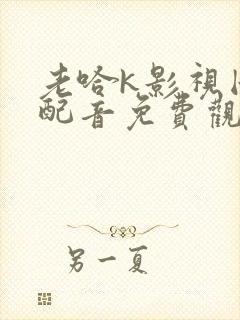 老哈K影視
配音免費觀
另一夏